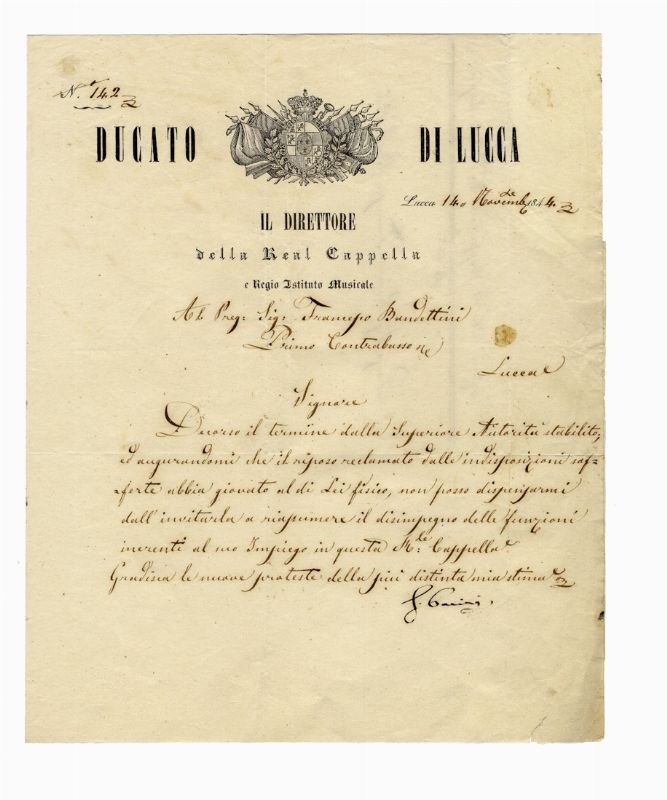 N.º 142
DUCATO DI LUCCA
Lucca 14 Novembre 1844
IL DIRETTORE
della Real Cappella
e Regio Istituto Musicale
Al Preg: Sig: Francesco Bandettini
Primo Contrabasso
Lucca
Signore
Decorso il termine dalla Superiore Autorità stabilito,
ed augurandomi che il riposo reclamato dalle indisposizioni sof-
ferte abbia giovato al di Lei fisico, non posso dispensarmi
dall'invitarla a riassumere il disimpegno delle funzioni
inerenti al suo Impiego in questa R:le Cappella
Gradisca le nuove proteste della più distinta mia stima
G. Pacini